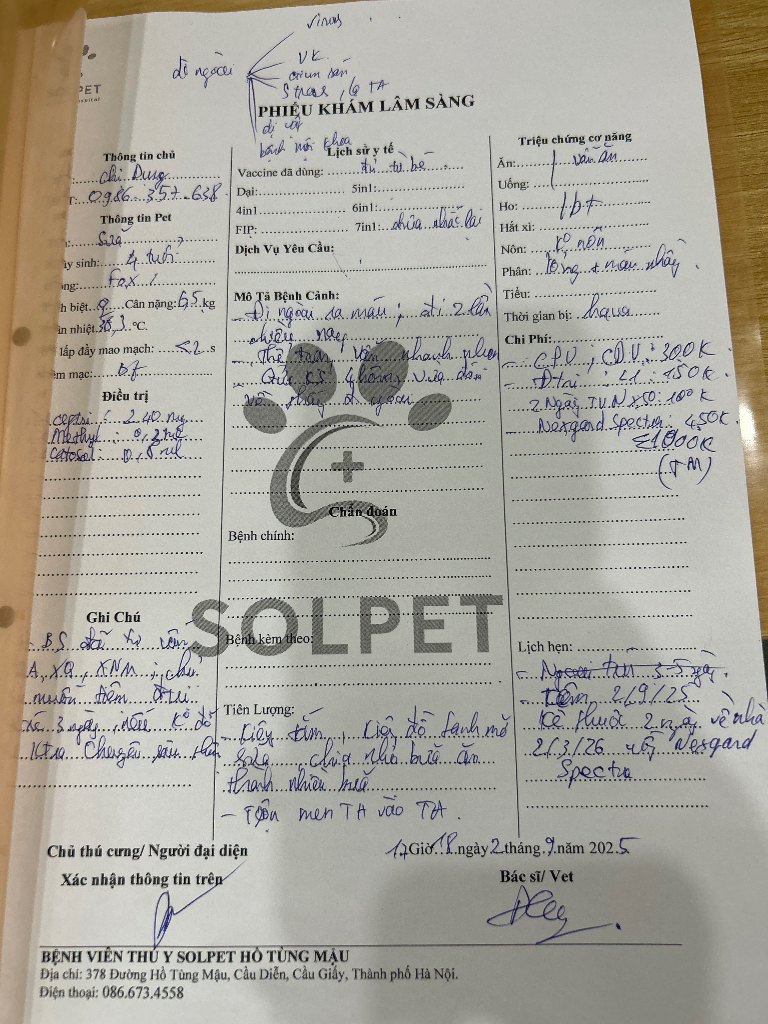 virus
VK
đi ngoài
giun sán
Stress, lạ TA
PET
PHIẾU KHÁM LÂM SÀNG
dị vật
bệnh nội khoa
Thông tin chủ
chị Dung
0986.357.638
Thông tin Pet
Sữa
ày sinh: 4 tuổi
ống: Fox
h biệt: Cân nặng: 6,5 kg
ân nhiệt: 38,3 °C
lấp đầy mao mạch: <2 s
êm mạc: bt
Điều trị
ceptri : 2.40 ml
Methyl : 0,3 ml
Catosal : 0,8 ml
Ghi Chú
- BS đã tư vấn
A, XQ, XNM ; chủ
muốn tiêm đtrị
3 ngày, nếu K° đỡ
Ktra chuyên sâu
Lịch sử y tế
Vaccine đã dùng: đủ từ bé
Dại: 5in1:
4in1 6in1:
FIP: 7in1: chưa nhắc lại
Dịch Vụ Yêu Cầu:
Mô Tả Bệnh Cảnh:
- Đi ngoài ra máu ; đi 2 lần
chiều nay
- Thể trạng vẫn nhanh nhẹn
vẫn thấy
Chẩn đoán
Bệnh chính:
SOLPET
Bệnh kèm theo:
Tiên Lượng:
- Kiêng tắm, kiêng đồ tanh mỡ
sữa, chia nhỏ bữa ăn
thành nhiều bữa
- Trộn men TA vào TA.
Triệu chứng cơ năng
Ăn: vẫn ăn
Uống:
Ho: bt
Hắt xì:
Nôn: K° nôn
Phân: lỏng + máu nhầy
Tiểu:
Thời gian bị: hqua
Chi Phí:
- CPV ; CDV : 300K
- Đtrị : L1 : 150K.
2 Ngày TVN x50: 100K
- Nexgard Spectra: 450K.
Σ 1000K
(TM)
Lịch hẹn:
- Tiêm 2/9/25
Kê thuốc 2 ngày về nhà
2/3/26 Nexgard
Spectra
Chủ thú cưng/ Người đại diện
Xác nhận thông tin trên
17 Giờ 18 ngày 2 tháng 9 năm 2025
Bác sĩ/ Vet
BỆNH VIỆN THÚ Y SOLPET HỒ TÙNG MẬU
Địa chỉ: 378 Đường Hồ Tùng Mậu, Cầu Diễn, Cầu Giấy, Thành phố Hà Nội.
Điện thoại: 086.673.4558